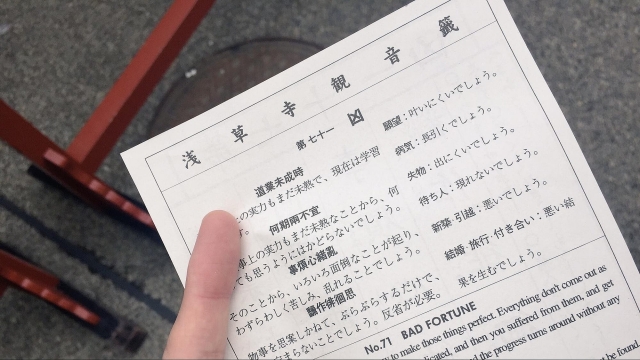 浅草寺観音籤
第七十一 凶
道業未成時
の実力もまだ未熟で、現在は学習
す。
何期両不宜
事上の実力もまだ未熟なことから、何
ても思うようにはかどらないでしょう。
事煩心緒乱
そのことから、いろいろ面倒なことが起り、
わずらわしく苦しみ、乱れることでしょう。
翻作徘徊思
物事を思案しかねて、ぶらぶらするだけで、
まないことでしょう。反省が必要。
願望:叶いにくいでしょう。
病気:長引くでしょう。
失物:出にくいでしょう。
待ち人:現れないでしょう。
新築・引越:悪いでしょう。
結婚・旅行・付き合い:悪い結
果を生むでしょう。
No.71 BAD FORTUNE
to make those things perfect. Everything don't come out as
and then you suffered from them, and get
the progress turns around without any
be found